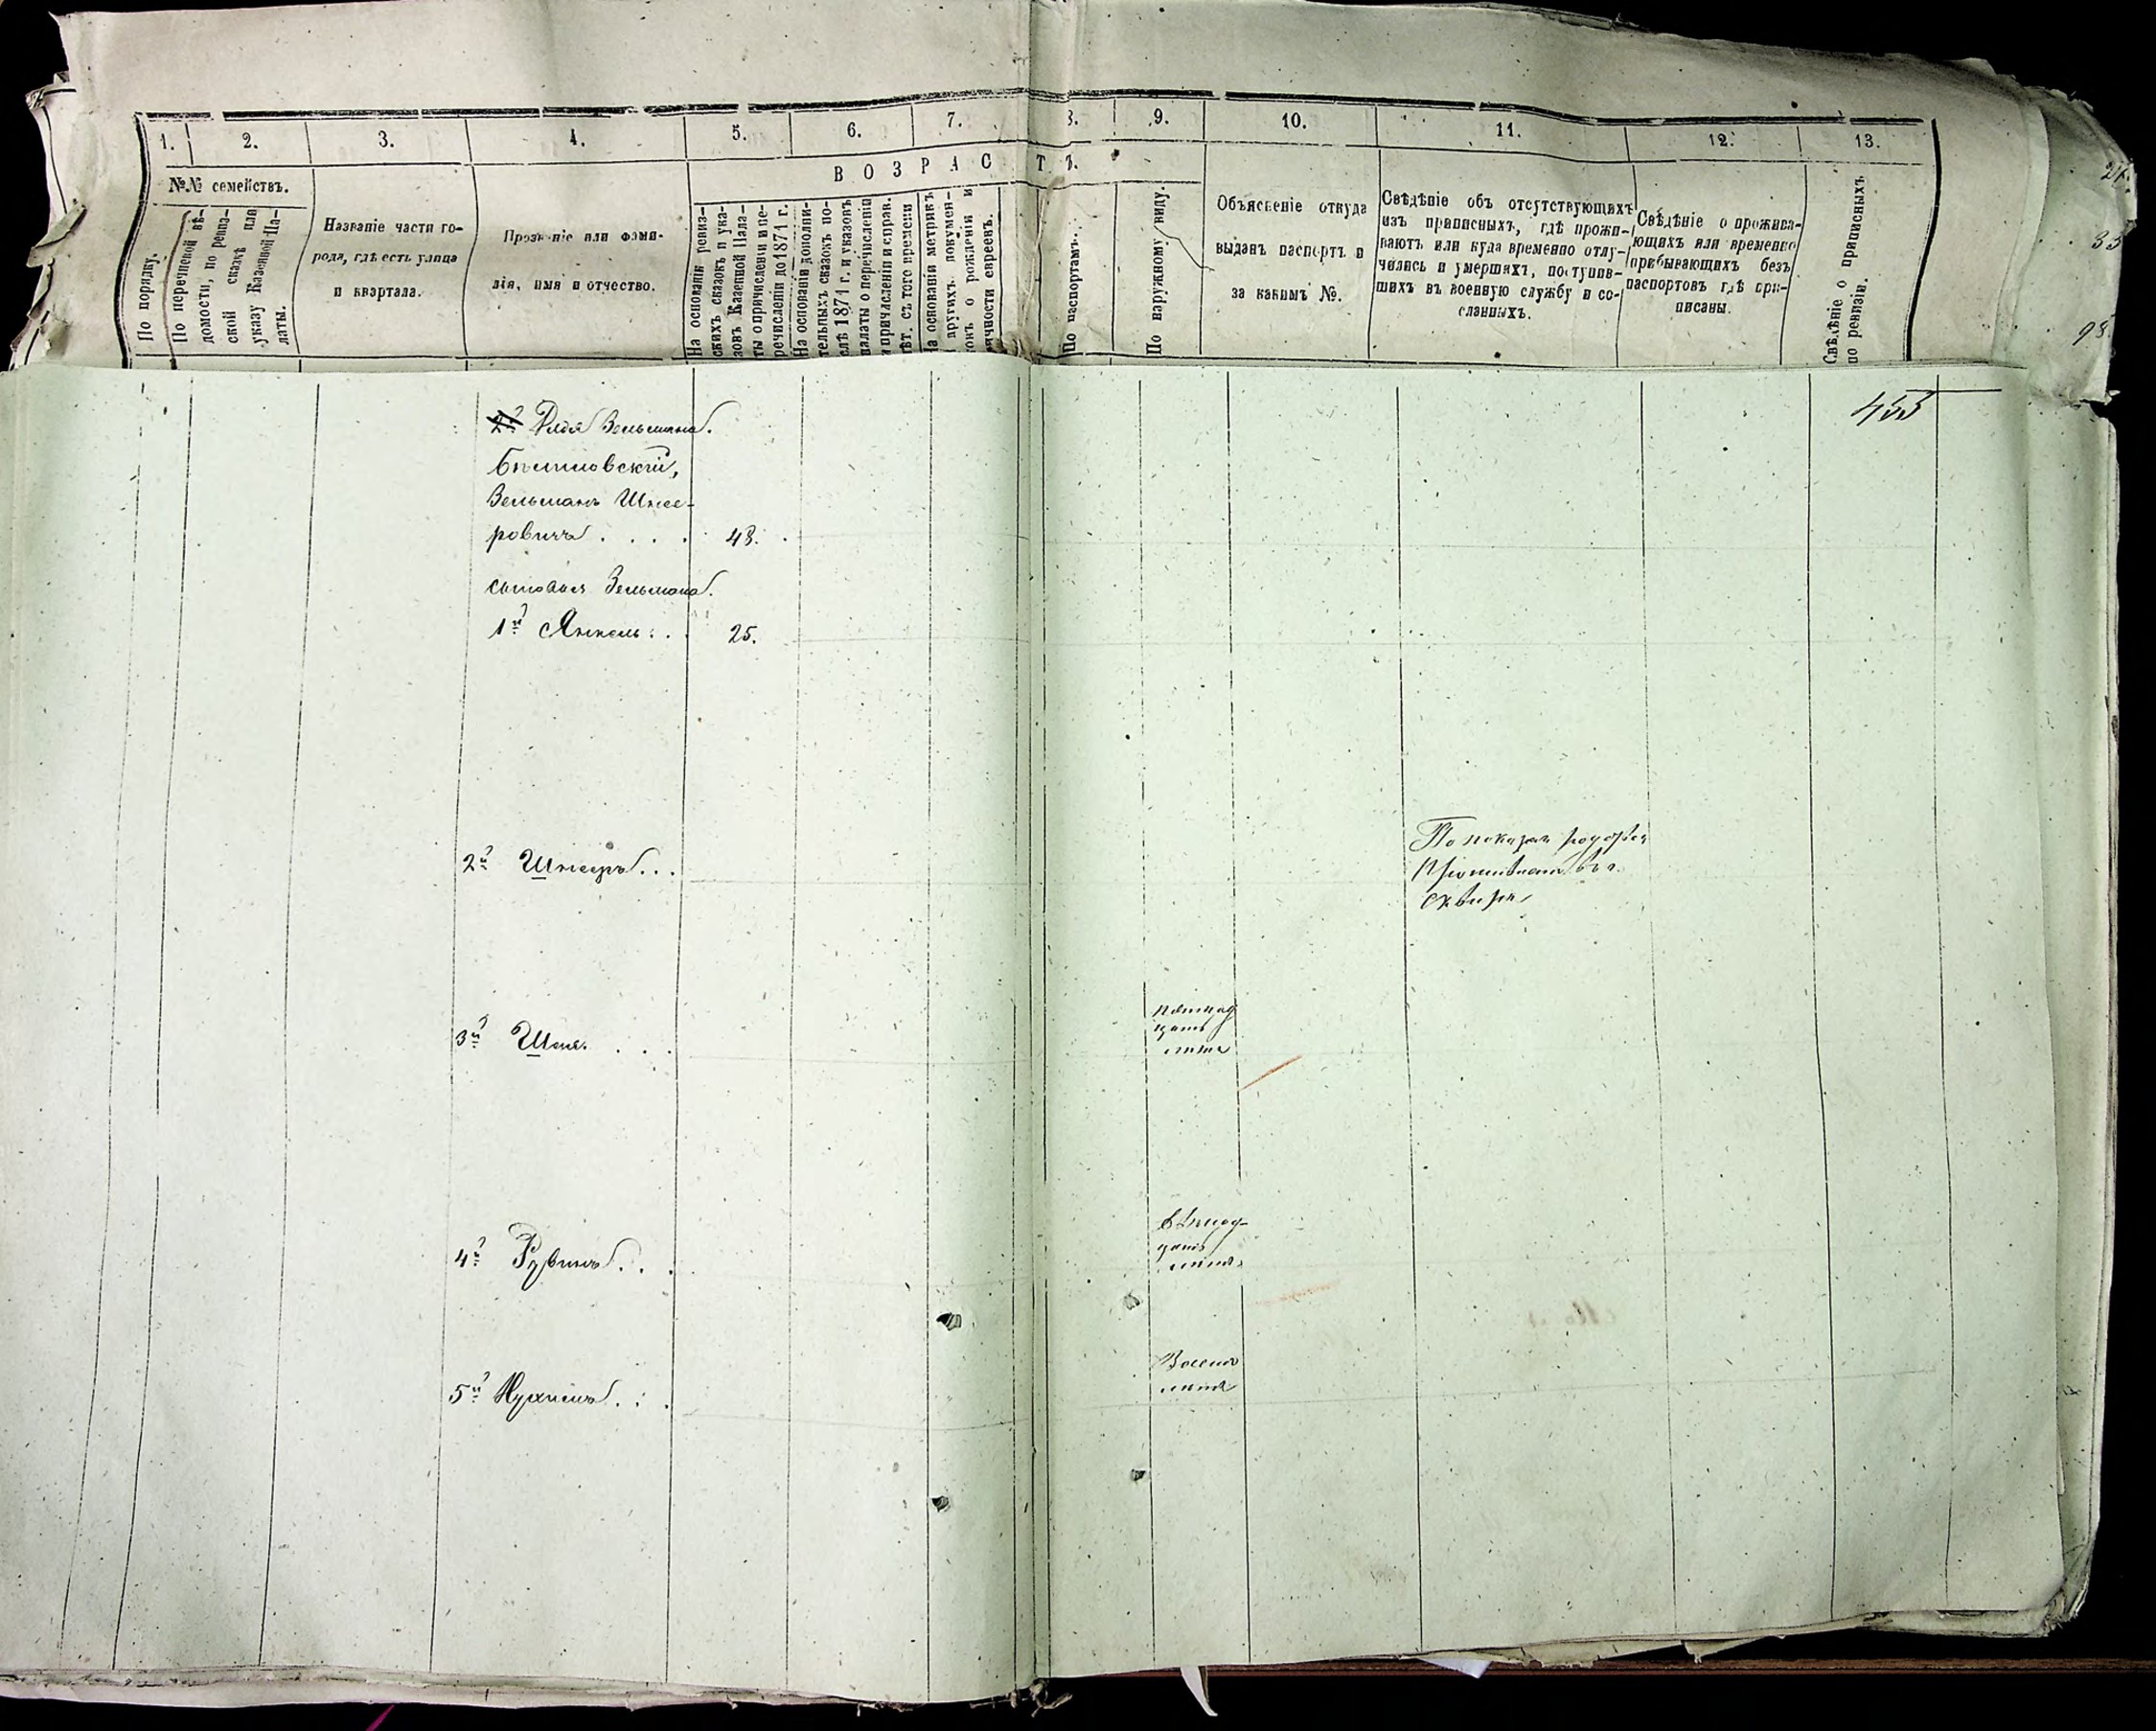 1. 2. 3. 4. 5. 6. 7. 8. 9. 10. 11. 12. 13.
№№ семействъ.
В О З Р А С Т Ъ.
По порядку.
По перечневой вѣ-
домости, по ревиз-
ской сказкѣ или
указу Казенной Па-
латы.
Названіе части го-
рода, гдѣ есть улица
и квартала.
Прозваніе или фами-
лія, имя и отчество.
На основаніи ревиз-
скихъ сказокъ и ука-
зовъ Казенной Пала-
ты о причисленіи и пе-
речисленіи до 1871 г.
На основаніи дополни-
тельныхъ сказокъ по-
слѣ 1871 г. и указовъ
палаты о перечисленіи
и причисленіи и справ.
лѣт. съ того времени
На основаніи метрикъ
и другихъ докумен-
товъ о рожденіи и
личности евреевъ.
По паспортамъ.
По наружному виду.
Объясненіе откуда
выданъ паспортъ и
за какимъ №.
Свѣдѣніе объ отсутствующихъ
изъ приписныхъ, гдѣ прожи-
ваютъ или куда временно отлу-
чились и умершихъ, поступив-
шихъ въ военную службу и со-
сланныхъ.
Свѣдѣніе о прожива-
ющихъ или временно
прибывающихъ безъ
паспортовъ гдѣ при-
писаны.
Свѣдѣніе о приписныхъ
по ревизіи.
455
Зельмана.
Зельманъ Шнее-
ровичъ . . . . 48.
сыновья Зельмана.
1й Янкель . . 25.
2й Шнееръ . . .
По показан
проживаетъ въ г.
Сквирѣ
3й Шая . . . пятнад
цать
лѣтъ
4й Рувинъ . . .
цать
лѣтъ
5й Нухимъ . . . Восемь
лѣтъ